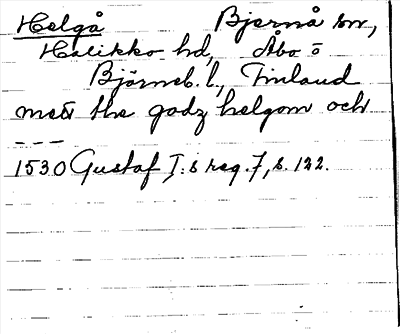 Helgå Bjernå sn,
Halikko hd, Åbo o
Björneb. l, Finland
med the godz helgom och
- - -
1530 Gustaf I:s reg. 7, s. 122.